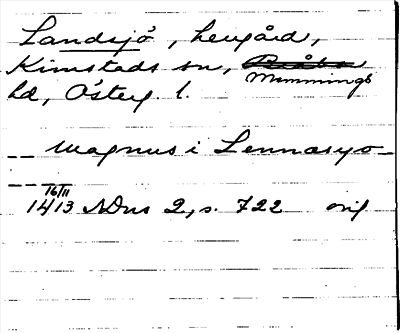 Landsjö, herrgård,
Kimstads sn, Memmings
hd, Österg. l.
-- Magnus i Lennæsyo --
16/11
1413 SDns 2, s. 722 orig